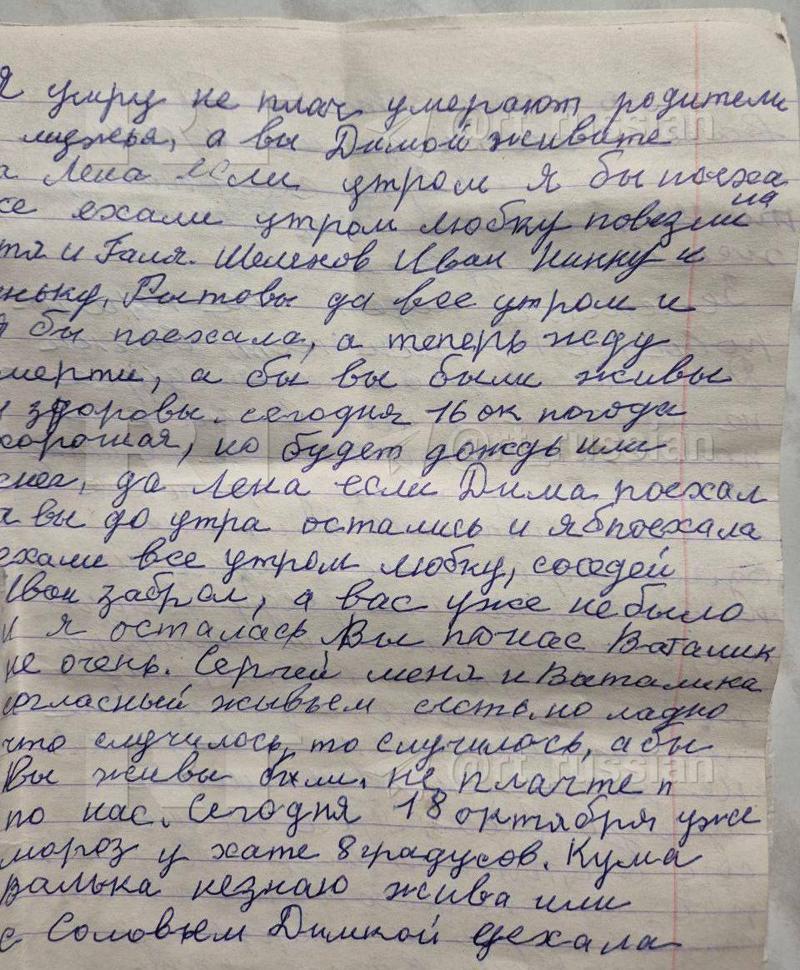 Я умру не плач умерают родители
а вы Димой живите
а Лена если утром я бы поеха
се ехали утром любку повезли на
тя и Галя. Шеленов Иван Нинку и
ньку, Рытовы да все утром и
я бы поехала, а теперь жду
мерти, а бы вы были живы
и здоровы. сегодня 16 ок погода
хорошая, но будет дождь или
снег, да Лена если Дима поехал
а вы до утра остались и я б поехала
ехали все утром любку, соседей
Иван забрал, а вас уже небыло
и я осталась Вы по нас Ваталик
не очень. Сергей меня и Виталика
огласный живьем систь, но ладно
что случилось, то случилось, абы
Вы живы были, не плачте п
по нас. Сегодня 18 октября уже
мороз у хате 8 градусов. Кума
валька незнаю жива или
с Соловьем Димкой уехала
@rt_russian
@rt_russian
@rt_russian